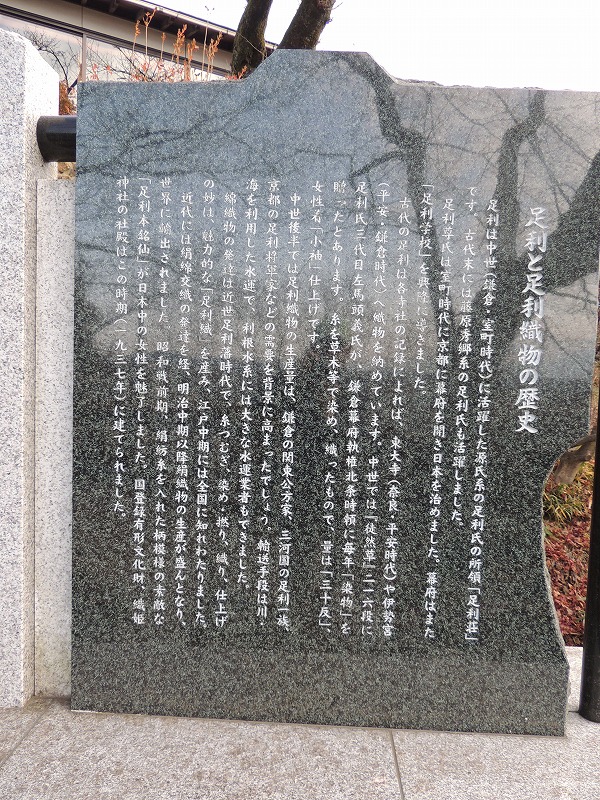 足利と足利織物の歴史
足利は中世(鎌倉・室町時代)に活躍した源氏系の足利氏の所領「足利荘」
です。古代末には藤原秀郷系の足利氏も活躍しました。
足利尊氏は室町時代に京都に幕府を開き日本を治めました。幕府はまた
「足利学校」を興隆に導きました。
古代の足利は各寺社の記録によれば、東大寺(奈良・平安時代)や伊勢宮
(平安・鎌倉時代)へ織物を納めています。中世では「徒然草」二一六段に
足利氏三代目左馬頭義氏が、鎌倉幕府執権北条時頼に毎年「染物」を
贈ったとあります。糸を草木等で染め、織ったもので、量は「三十反」、
女性着「小袖」仕上げです。
中世後半では足利織物の生産量は、鎌倉の関東公方家、三河国の足利一族、
京都の足利将軍家などの需要を背景に高まったでしょう。輸送手段は川・
海を利用した水運で、利根水系には大きな水運業者もできました。
綿織物の発達は近世足利藩時代で、糸つむぎ、染め・撚り、織り、仕上げ
の妙は、魅力的な「足利織」を産み、江戸中期には全国に知れわたりました。
近代には絹綿交織の発達を経、明治中期以降絹織物の生産が盛んとなり、
世界に輸出されました。昭和戦前期、絹紡糸を入れた柄模様の素敵な
「足利本銘仙」が日本中の女性を魅了しました。国登録有形文化財 織姫
神社の社殿はこの時期(一九三七年)に建てられました。